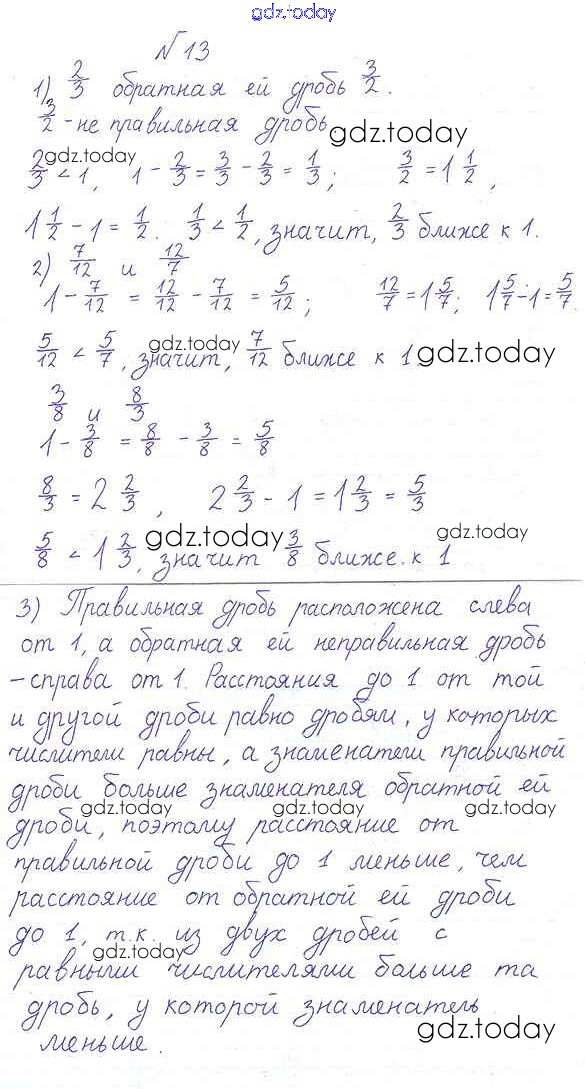 gdz.today
№ 13
1) 2/3 обратная ей дробь 3/2.
3/2 - не правильная дробь gdz.today
2/3 < 1, 1 - 2/3 = 3/3 - 2/3 = 1/3; 3/2 = 1 1/2,
gdz.today
1 1/2 - 1 = 1/2. 1/3 < 1/2, значит, 2/3 ближе к 1.
2) 7/12 и 12/7
1 - 7/12 = 12/12 - 7/12 = 5/12; 12/7 = 1 5/7; 1 5/7 - 1 = 5/7.
5/12 < 5/7, значит, 7/12 ближе к 1
gdz.today gdz.today
3/8 и 8/3
1 - 3/8 = 8/8 - 3/8 = 5/8
8/3 = 2 2/3, 2 2/3 - 1 = 1 2/3 = 5/3
5/8 < 1 2/3, значит 3/8 ближе к 1
gdz.today gdz.today
3) Правильная дробь расположена слева
от 1, а обратная ей неправильная дробь
- справа от 1. Расстояния до 1 от той
и другой дроби равно дробям, у которых
числители равны, а знаменатели правильной
дроби больше знаменателя обратной ей
gdz.today gdz.today gdz.today
дроби, поэтому расстояние от
правильной дроби до 1 меньше, чем
расстояние от обратной ей дроби
до 1, т.к. из двух дробей с
gdz.today
равными числителями больше та
дробь, у которой знаменатель
меньше.
gdz.today